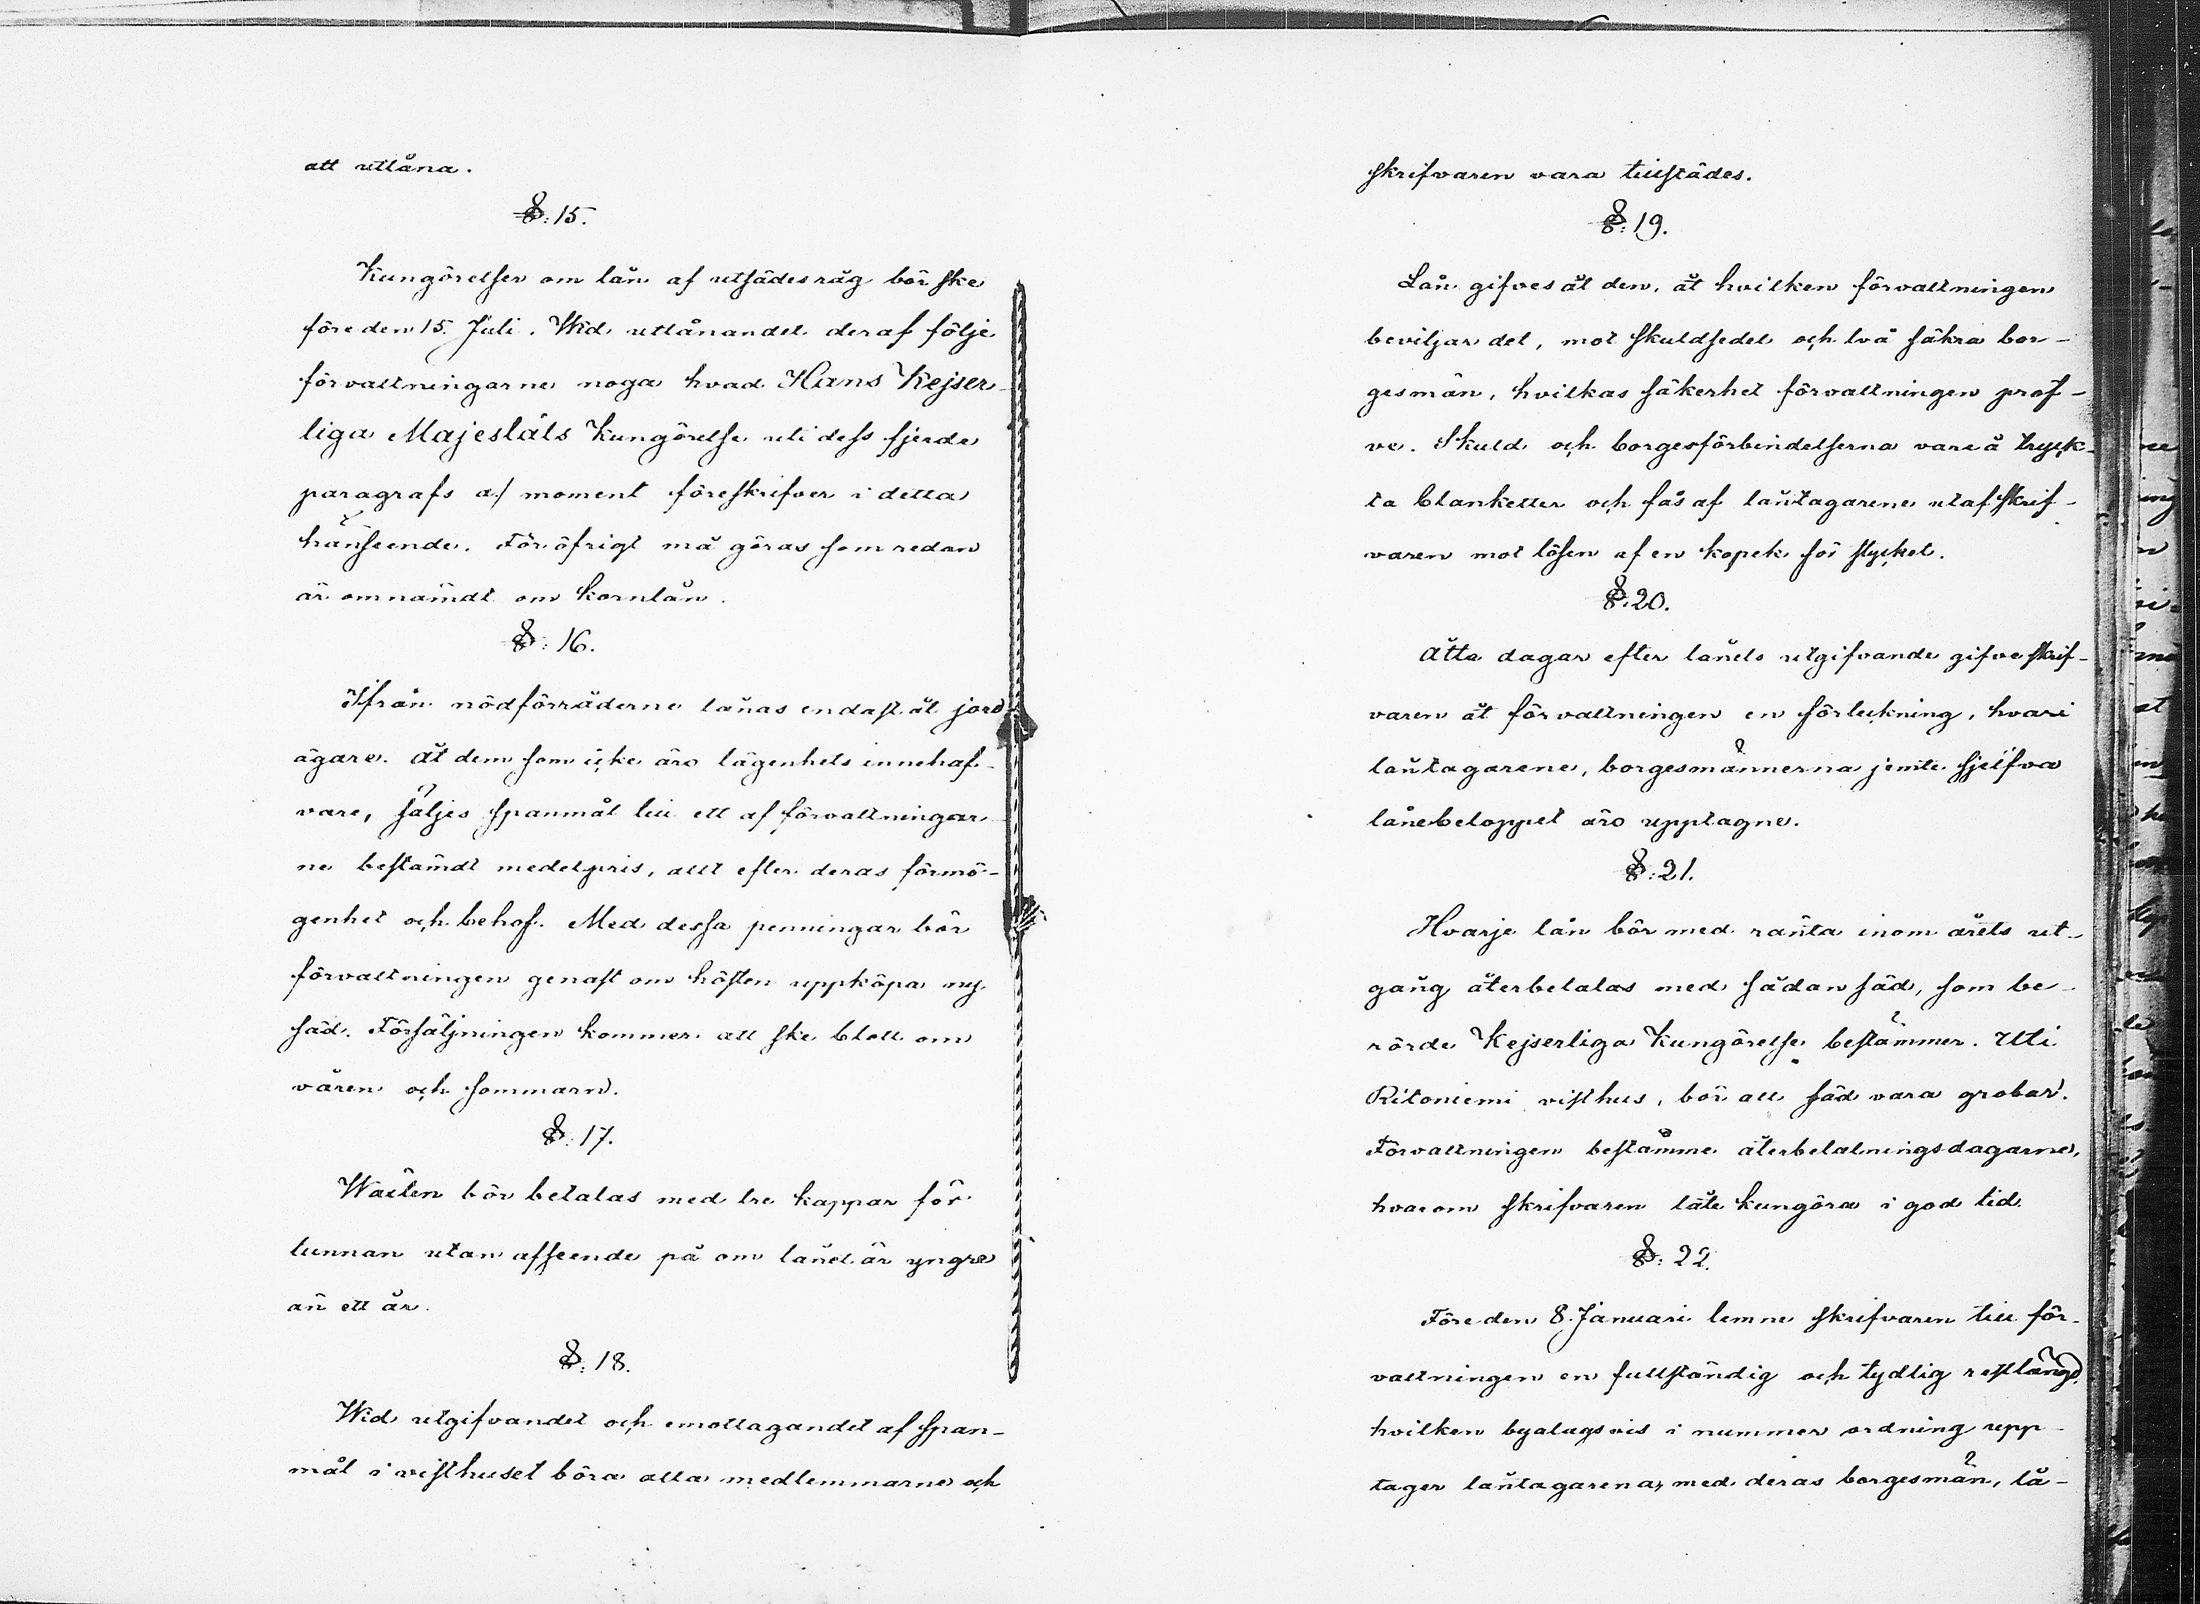 att utlåna.
§: 15.
Kungörelser om lån af utsädesråg bör ske
före den 15. Juli. Wid utlånandet deraf följe
förvaltningarne noga hvad Hans Kejser-
liga Majestäts Kungörelse uti dess fjerde
paragrafs a/ moment föreskrifver i detta
hänseende. För öfrigt må göras som redan
är omnämdt om kornlån.
§: 16.
Ifrån nödförråderne lånas endast åt jord
ägare. Åt dem som icke äro lägenhets innehaf-
vare, säljes spanmål till ett af förvaltningar
ne bestämdt medelpris, allt efter deras förmö-
genhet och behof. Med dessa penningar bör
förvaltningen genast om hösten uppköpa ny
säd. Försäljningen kommer att ske blott om
våren och sommarn.
§: 17.
Wälten bör betalas med tre kappar för
tunnan utan afseende på om lånet är yngre
än ett år.
§: 18.
Wid utgifvandet och emottagandet af span-
mål i visthuset böra alla medlemmarne och
skrifvaren vara tillstädes.
§: 19.
Lån gifves åt den, åt hvilken förvaltningen
beviljar det, mot skuldsedel och två säkra bor-
gesmän, hvilkas säkerhet förvaltningen pröf-
ve. Skuld och borgesförbindelserna vare å tryck-
ta blanketter och fås af låntagarene utaf skrif-
varen mot lösen af en kopek för stycket.
§: 20.
Åtta dagar efter lånets utgifvande gifve skrif-
varen åt förvaltningen en förteckning, hvari
låntagarene, borgesmännerna jemte sjelfva
lånebeloppet äro upptagne.
§: 21.
Hvarje lån bör med ränta inom årets ut-
gång återbetalas med sådan säd, som be-
rörde Kejserliga Kungörelse bestämmer. Uti
Ritoniemi visthus, bör all säd vara grobar.
Förvaltningen bestämme återbetalningsdagarne,
hvarom skrifvaren låte kungöra i god tid.
§: 22.
Före den 8. Januari lemne skrifvaren till för-
valtningen en fullständig och tydlig restlängd,
hvilken byalagsvis i nummer ordning upp-
tager låntagarena, med deras borgesmän, lå-